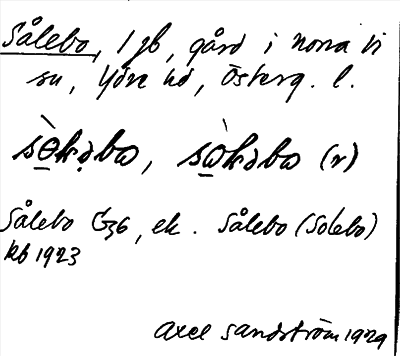 Sålebo, 1 gb, gård i norra Vi
sn, Ydre hd, Österg. l.
sɵ̀kəbω, sὼkəbω (r)
Sålebo G36, ek. Sålebo (Solebo)
kb 1923
Axel Sandström 1929